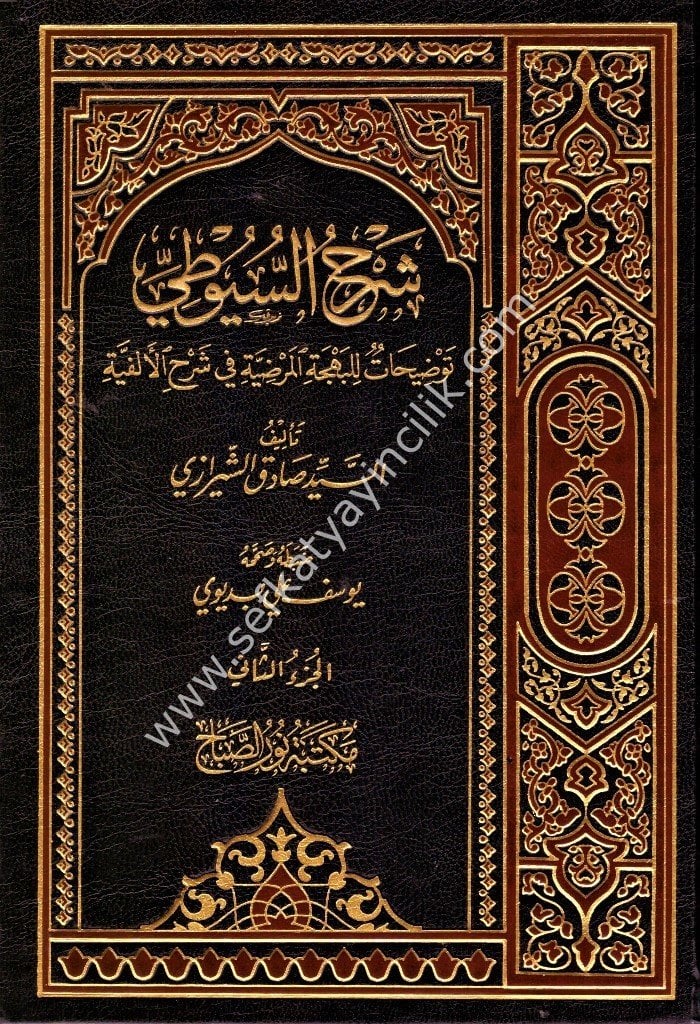 شَرْحُ السُّيُوطِيِّ
تَوْضِيحَاتٌ لِلْبَهْجَةِ الْمَرْضِيَّةِ فِي شَرْحِ الْأَلْفِيَّةِ
تَأْلِيْفُ
السَّيِّد صَادِق الشِّيرَازِي
ضَبَطَهُ وَصَحَّحَهُ
يوسف علي بديوي
الجُزءُ الثَّاني
مَكتَبَة نُور الصَّبَاح
www.serkatyayincilik.com